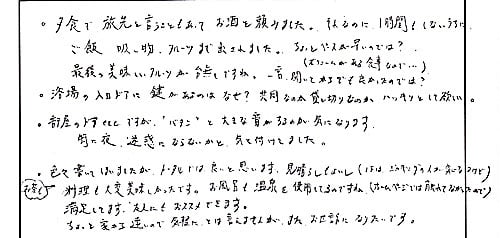 ・夕食で 旅先と言うこともあって お酒を頼みました。それなのに、1時間もしないうちに
ご飯 吸い物、フルーツまで出されました。ちょっとペースが早いのでは?
(ボリュームがある食事なので…)
最後の美味しいフルーツが 残念ですね。一言、聞いてからでも良かったのでは?
・浴場の入口ドアに 鍵があるのはなぜ? 共同なのか 貸し切りなのか ハッキリして欲しい。
・部屋のドアですが、"バタン"と 大きな音がするのが 気になります。
特に夜、迷惑にならないかと 気を付けてました。
・色々書いてしまいましたが、トータルでは良いと思います。見晴らしもよいし
料理も大変美味しかったです。お風呂も 温泉を使用してるのですね (ホームページでは
満足してます。友人にも おススメできます。
ちょっと 遠いので 気軽に とは言えませんが、また お世話になりたいです。